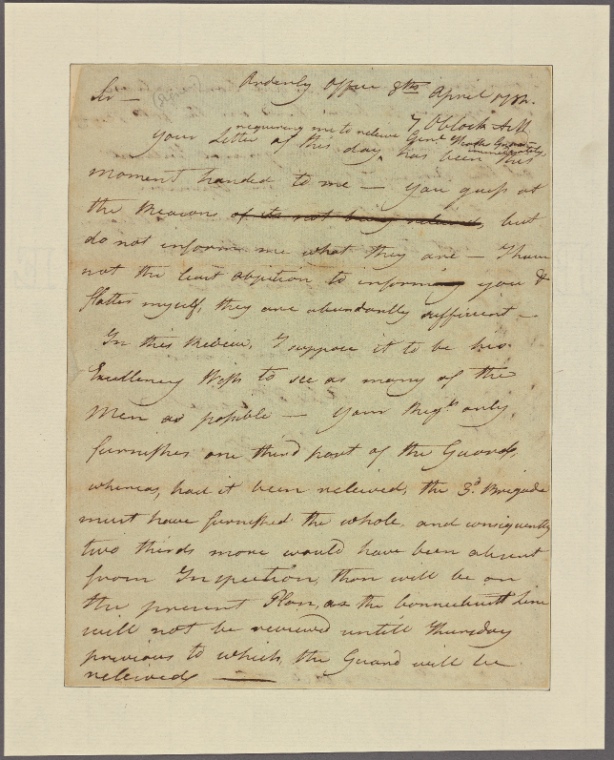 Sir — Orderly Office 8th April 1782.
7 OClock AM
requiring me to releive Genl Guard immediately
Your Letter of this day, has been this
moment handed to me — You guess at
the Reasons of its not being releived, but
do not inform me what they are — I have
not the least objection to informing you &
flatter myself, they are abundantly sufficient —
In this Review, I suppose it to be his
Excellency Wish to see as many of the
Men as possible — Your Regt. only,
furnishes one third part of the Guards,
whereas, had it been releived, the 3d. Brigade
must have furnished the whole, and consequently
two thirds more would have been absent
from Inspection, than will be on
the present Plan, as the Connecticutt Line
will not be reviewed untill Thursday
previous to which, the Guard will be
releived, —